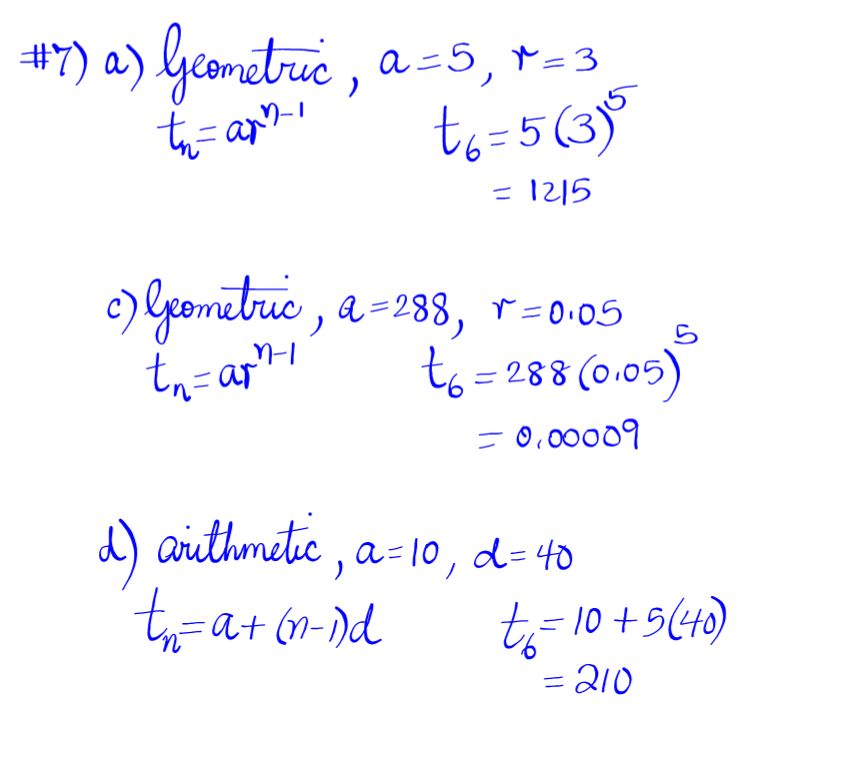 #7) a) Geometric, a=5, r=3
tₙ=arⁿ⁻¹ t₆=5(3)⁵
= 1215
c) Geometric, a=288, r=0.05
tₙ=arⁿ⁻¹ t₆=288(0.05)⁵
= 0.00009
d) arithmetic, a=10, d=40
tₙ=a+(n-1)d t₆=10+5(40)
= 210